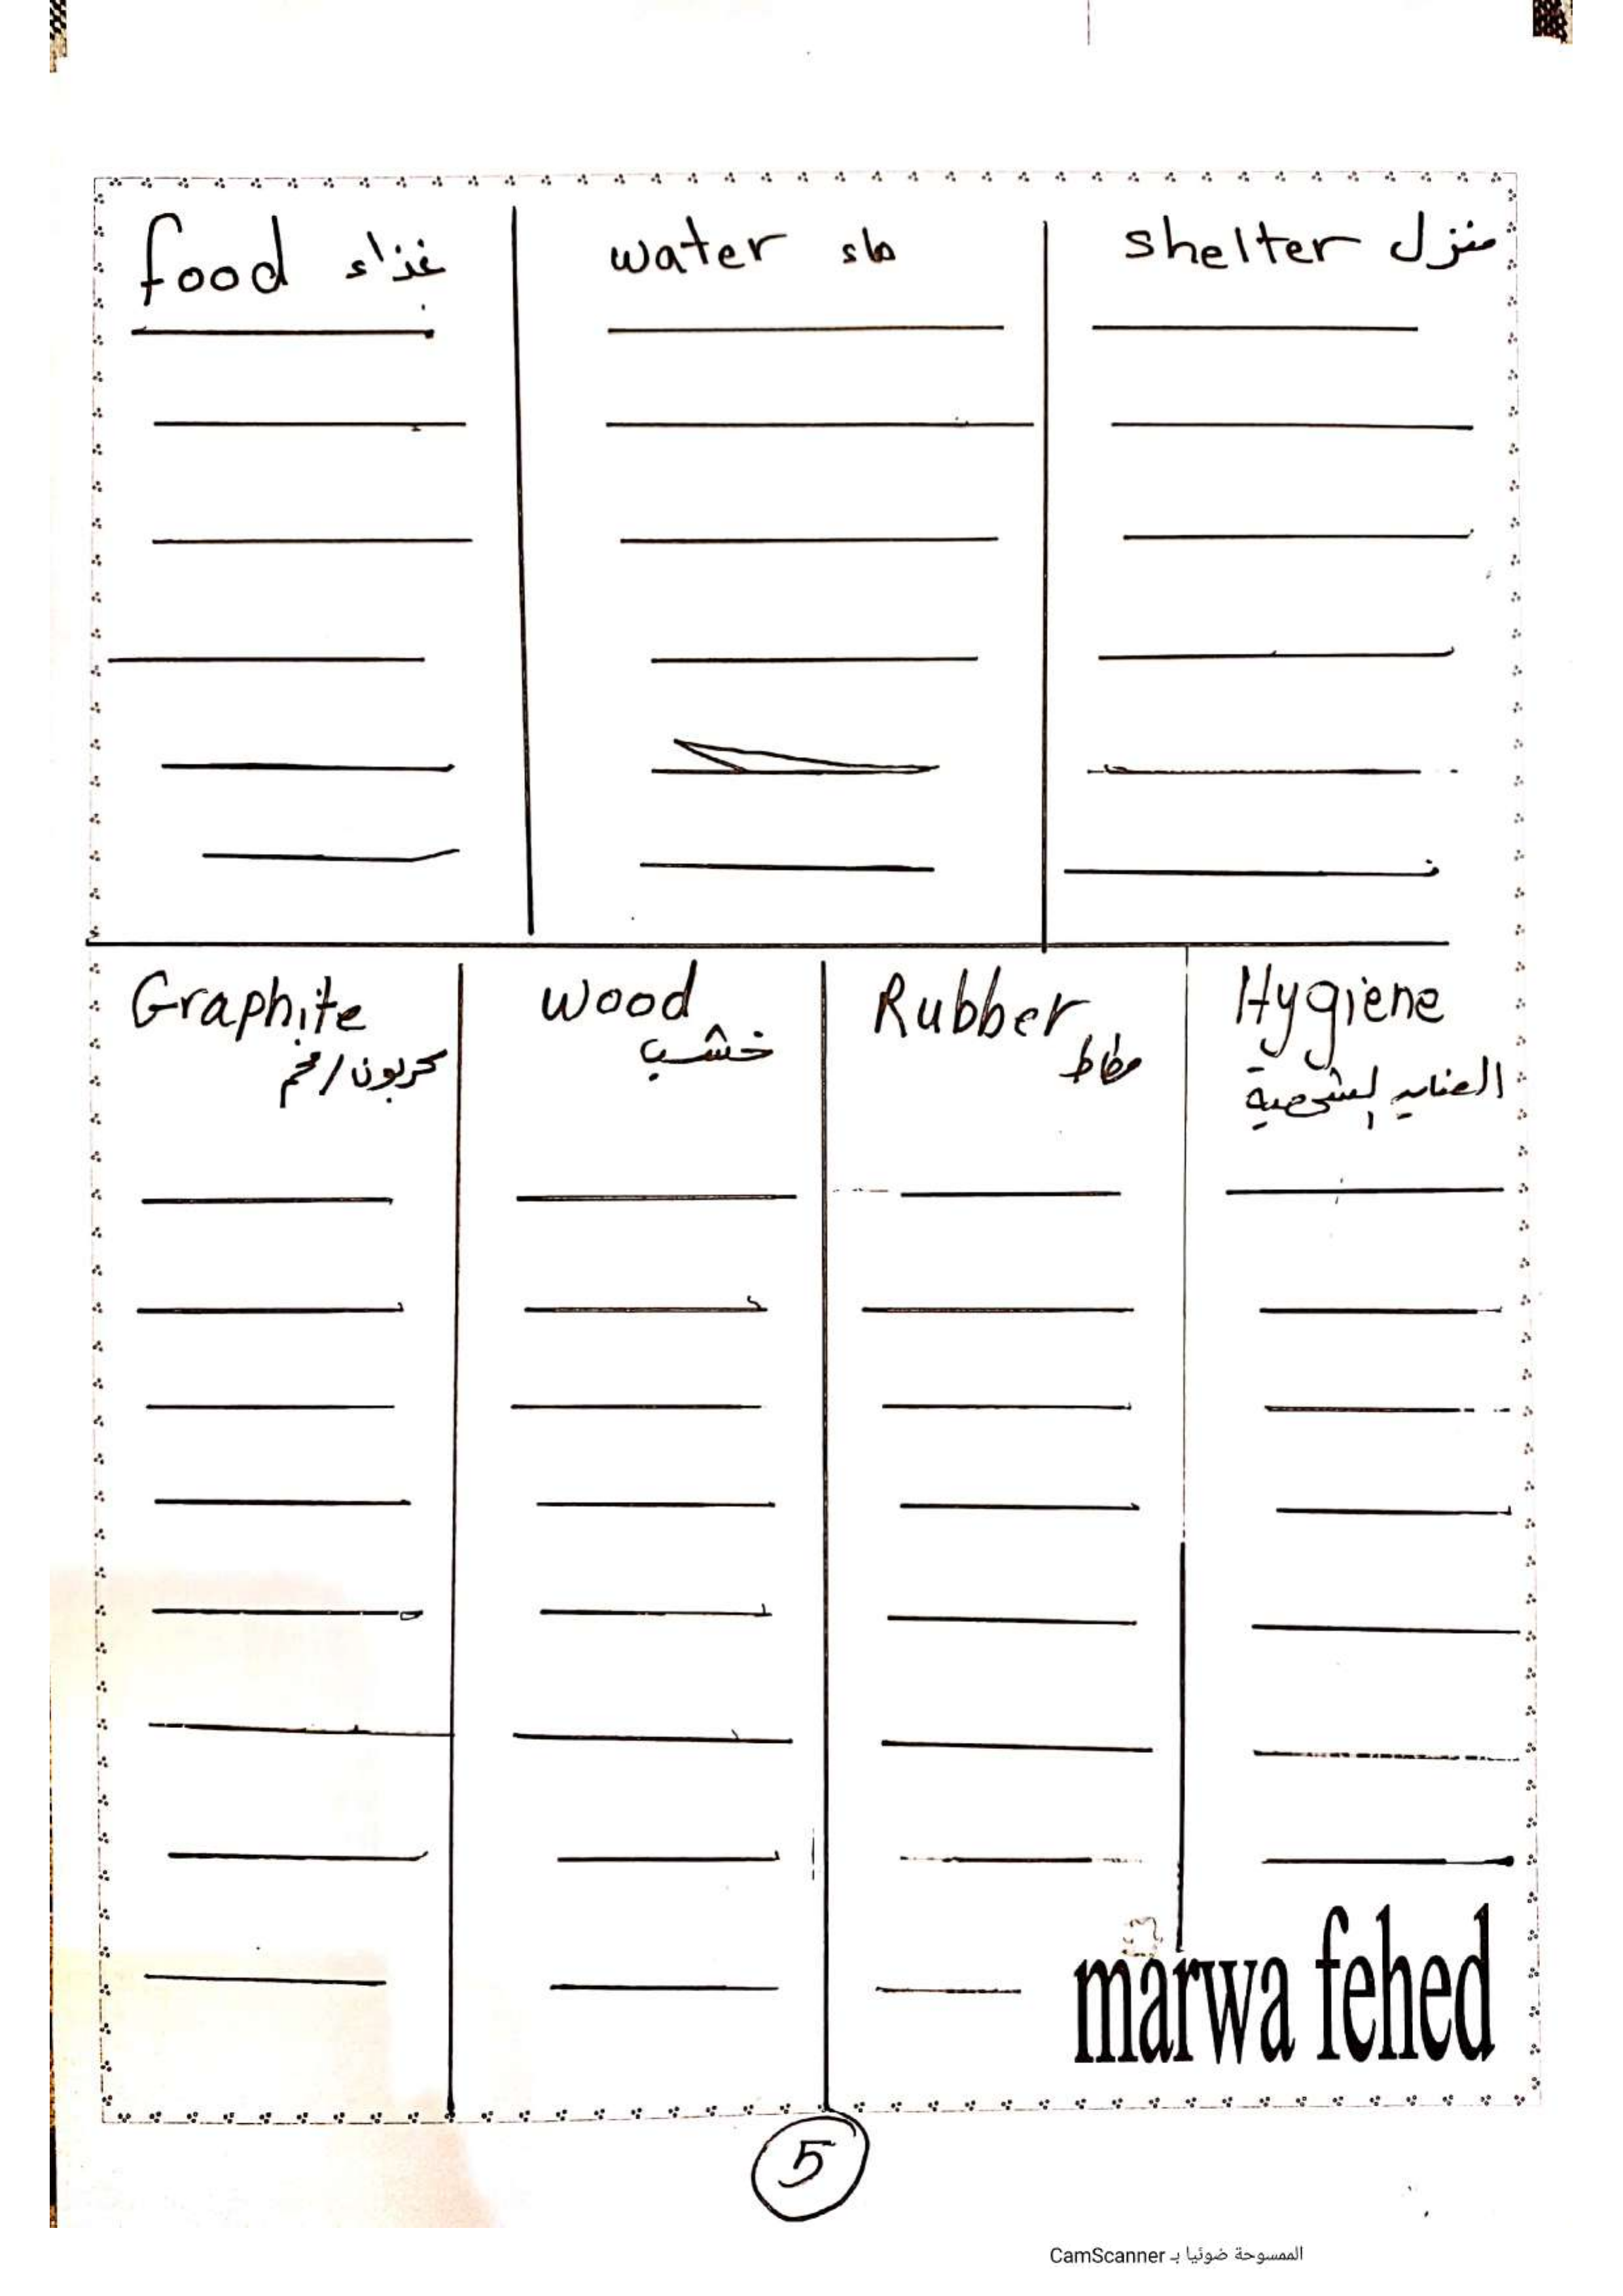 food غذاء
water ماء
shelter منزل
Graphite
كربون/فحم
wood
خشب
Rubber
مطاط
Hygiene
العنايه الشخصية
marwa fehed
5
الممسوحة ضوئيا بـ CamScanner